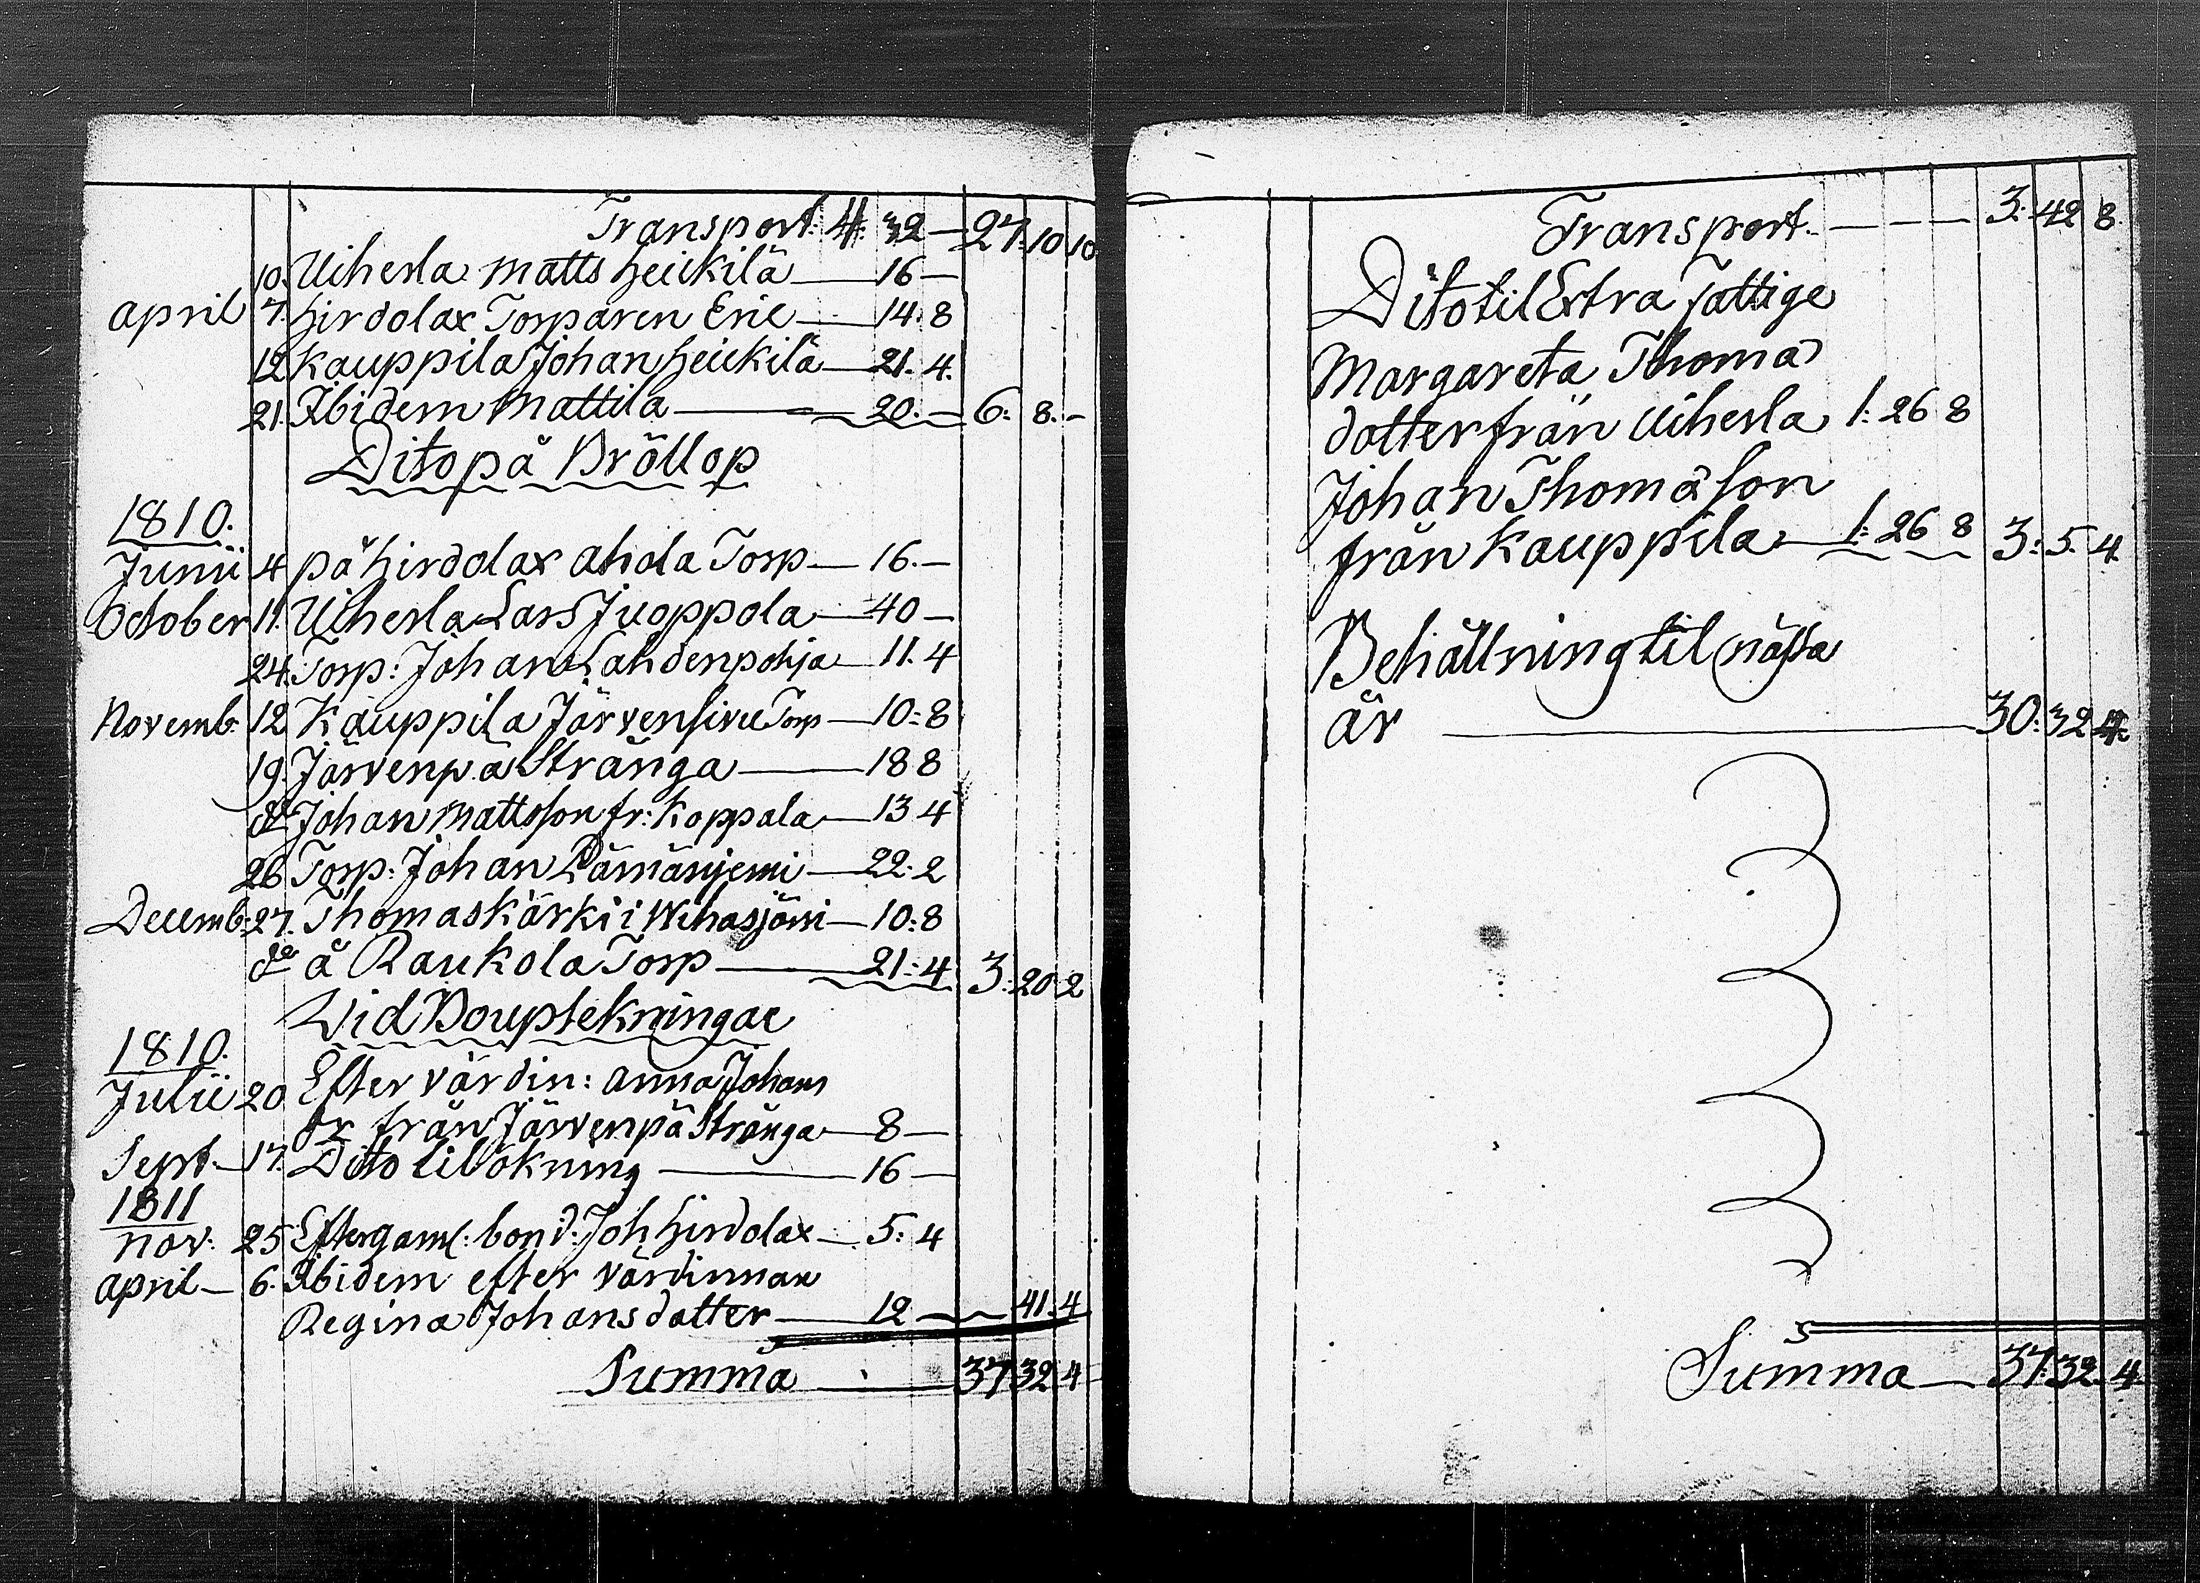 Transport. 4. 32 — 27. 10 10
10. Uiherla Matts Heickilä — 16 —
April 7. Hirdolax Torparen Eric — 14. 8
12 Kauppila Johan Heickilä — 21. 4.
21. Ibidem Mattila — 20. — 6. 8. —
Dito på Bröllop
1810.
Junii 4 på Hirdolax Ahola Torp — 16. —
October 11. Uiherla Lars Juoppola — 40 —
24. Torp: Johan Lahdenpohja — 11. 4
Novemb: 12 Kauppila Järvensivu Torp — 10: 8
19. Järvenpä Stränga — 18 8
do Johan Mattsson fr: Koppala — 13 4
26 Torp: Johan Lämäniemi — 22: 2
Decemb: 27. Thomas Kärki i Wehasjärvi — 10: 8
do å Raukola Torp — 21: 4 3: 20 2
Vid Boupteckningar
1810.
Julii 20 Efter värdin: Anna Johans
dr från Järvenpä Stränga — 8 —
Sept. — 17. Dito tilökning — 16 —
1811
Nov: 25 Efter gaml: bond: Joh Hirdolax — 5: 4
April — 6. Ibidem efter värdinnan
Regina Johansdotter — 12 — 41. 4
Summa — 37 32 4
Transport. — — — 3. 42 8.
Dito til Extra fattige
Margareta Thomas
dotter från Uiherla 1: 26 8
Johan Thomasson
från Kauppila — 1: 26 8 3: 5. 4
Behållning til nästa
år — 30: 32 4
Summa — 37: 32. 4